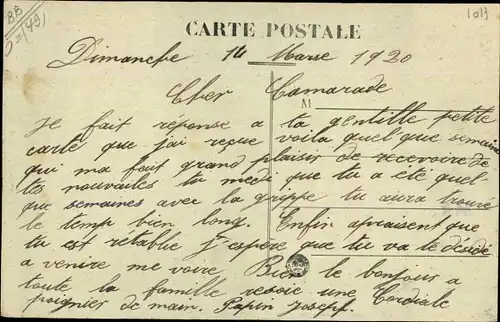 BB
1013
CARTE POSTALE
Dimanche 14 Marse 1920
Cher Camarade
M
Je fait réponse a ta gentille petite
carte que j'ai reçue voila quel que semaine
qui ma fait grand plaisir de recevoire de
tes nouvailes tu me di que tu a été quel
que semaines avec la grippe tu aura trouvé
le temp bien long. Enfin apraisent que
tu est retablie j'espère que tu va te déside
a venire me voire. Bien le bonjour a
toute la famille resoie une Cordiale
poignier de main. Papin Joseph.